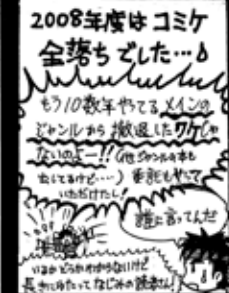 2008年度はコミケ
全落ちでした…
もう10数年やってるメインの
ジャンルから撤退したワケじゃ
ないのよー!!(他ジャンルの本も
出してるけど…)委託もやって
いただけたし!
誰に言ってんだ
いるかどうかわからないけど
長きにわたってなじみの読者さん!